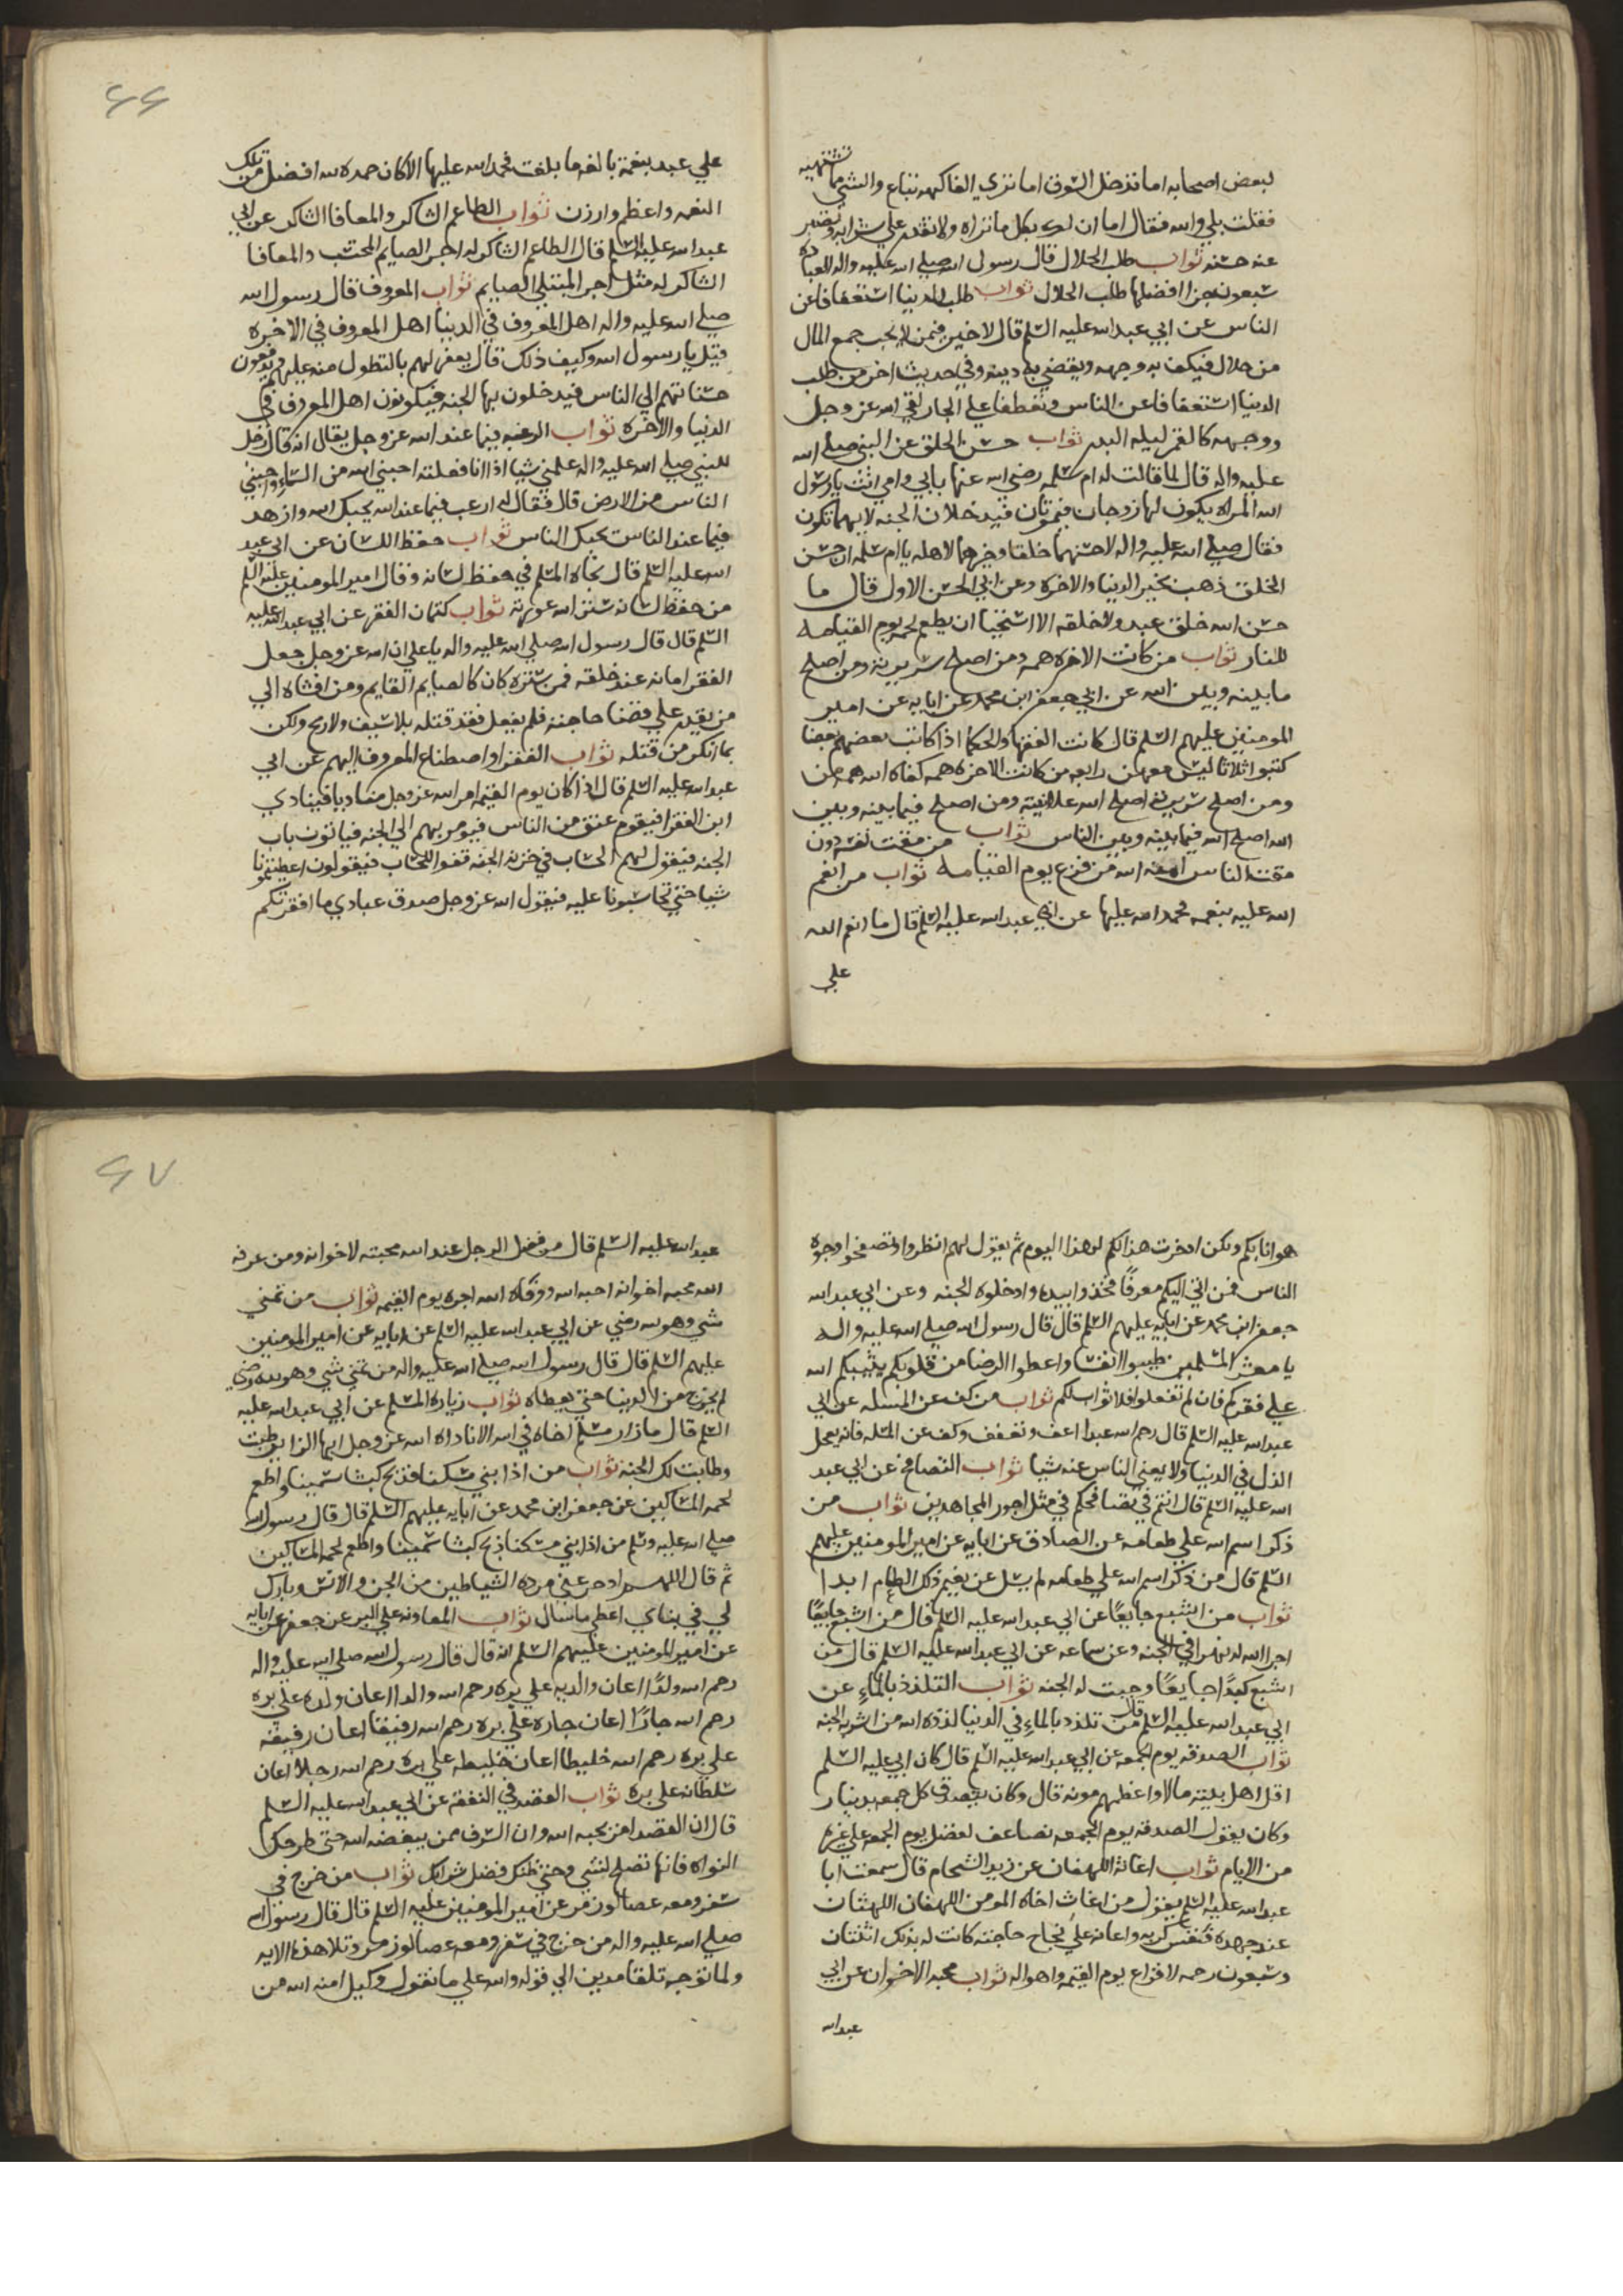 لبعض اصحابه اما تدخل السوق اما تري الفاكهه تباع والشي مما تشتهيه
فقلت بلي والله فقال اما ان لك بكل ما تراه ولا تقدر علي شرايه وتصبر
عنه حسنه ثواب طلب الحلال قال رسول الله صلي الله عليه واله العباده
سبعون جزا افضلها طلب الحلال ثواب طلب الدنيا استعفافا عن
الناس عن ابي عبد الله عليه السلم قال لا خير فيمن لا يحب جمع المال
من حلال فيكف به وجهه ويقضي به دينه وفي حديث اخر من طلب
الدنيا استعفافا عن الناس وتعطفا علي الجار لقي الله عز وجل
ووجهه كالقمر ليله البدر ثواب حسن الخلق عن النبي صلي الله
عليه واله قال لما قالت له ام سلمه رضي الله عنها بابي وامي انت يا رسول
الله المراه يكون لها زوجان فيموتان فيدخلان الجنه لايهما تكون
فقال صلي الله عليه واله لاحسنهما خلقا وخيرهما لاهله يا ام سلمه ان حسن
الخلق ذهب بخير الدنيا والاخره وعن ابي الحسن الاول قال ما
حسن الله خلق عبد ولا خلقه الا استحيا ان يطعم لحمه يوم القيامه
للنار ثواب من كانت الاخره همه ومن اصلح سريرته ومن اصلح
ما بينه وبين الله عن ابي جعفر ابن محمد عن ابايه عن امير
المومنين عليهم السلم قال كانت الفقها والحكما اذا كاتب بعضهم بعضا
كتبوا ثلاثا ليس معهن رابعه من كانت الاخره همه كفاه الله همه من
ومن اصلح سريرته اصلح الله علانيته ومن اصلح فيما بينه وبين
الله اصلح الله فيما بينه وبين الناس ثواب من مقت نفسه دون
مقت الناس امنه الله من فزع يوم القيامه ثواب من انعم
الله عليه بنعمه فحمد الله عليها عن ابي عبد الله عليه السلم قال ما انعم الله
علي
٤٤
علي عبد بنعمة بالغه ما بلغت فحمد الله عليها الا كان حمده لله افضل من تلك
النعمه واعظم واوزن ثواب الطاعم الشاكر والمعافا الشاكر عن ابي
عبد الله عليه السلم قال الطاعم الشاكر له اجر الصايم المحتسب والمعافا
الشاكر له مثل اجر المبتلي الصايم ثواب المعروف قال رسول الله
صلي الله عليه واله اهل المعروف في الدنيا اهل المعروف في الاخره
قيل يا رسول الله وكيف ذلك قال يغفر لهم بالتطول منه عليهم ويدفعون
حسناتهم الي الناس فيدخلون بها الجنه فيكونون اهل المعروف في
الدنيا والاخره ثواب الرغبه فيما عند الله عز وجل يقال انه قال رجل
للنبي صلي الله عليه واله علمني شيا اذا انا فعلته احبني الله من السماء واحبني
الناس من الارض قال فقال له ارغب فيما عند الله يحبك الله وازهد
فيما عند الناس يحبك الناس ثواب حفظ اللسان عن ابي عبد
الله عليه السلم قال نجاه المسلم في حفظ لسانه وقال امير المومنين عليه السلم
من حفظ لسانه ستر الله عورته ثواب كتمان الفقر عن ابي عبد الله عليه
السلم قال قال رسول الله صلي الله عليه واله يا علي ان الله عز وجل جعل
الفقر امانه عند خلقه فمن ستره كان كالصايم القايم ومن افشاه الي
من يقدر علي قضا حاجته فلم يفعل فقد قتله بلا سيف ولا رمح ولكن
بما انكر من قتله ثواب الفقرا واصطناع المعروف اليهم عن ابي
عبد الله عليه السلم قال اذا كان يوم القيمه امر الله عز وجل مناديا فينادي
اين الفقرا فيقوم عنق من الناس فيومر بهم الي الجنه فياتون باب
الجنه فيقول لهم خزنه الجنه قفوا للحساب فيقولون اعطيتمونا
شيا حتي تحاسبونا عليه فيقول الله عز وجل صدق عبادي ما افقرتكم
هوانا بكم ولكن ادخرت هذا لكم لهذا اليوم ثم يقول لهم انظروا وتصفحوا وجوه
الناس فمن اتي اليكم معروفًا فخذوا بيده وادخلوه الجنه وعن ابي عبد الله
جعفر ابن محمد عن ابايه عليهم السلم قال قال رسول الله صلي الله عليه واله
يا معشر المسلمين طيبوا انفسا واعطوا الرضا من قلوبكم يثيبكم الله
علي فقركم فان لم تفعلوا فلا ثواب لكم ثواب من كف عن المسله عن ابي
عبد الله عليه السلم قال رحم الله عبدا اعف وتعفف وكف عن المسله فانه يعجل
الذل في الدنيا ولا يغني الناس عنه شيا ثواب التصافح عن ابي عبد
الله عليه السلم قال انتم في تصافحكم في مثل اجور المجاهدين ثواب من
ذكر اسم الله علي طعامه عن الصادق عن ابايه عن امير المومنين عليهم
السلم قال من ذكر اسم الله علي طعامه لم يسل عن نعيم ذلك الطعام ابدا
ثواب من اشبع جايعًا عن ابي عبد الله عليه السلم قال من اشبع جايعًا
اجرا الله له نهرا في الجنه وعن سماعه عن ابي عبد الله عليه السلم قال من
اشبع كبدًا جايعًا وجبت له الجنه ثواب التلذذ بالماء عن
ابي عبد الله عليه السلم قال من تلذذ بالماء في الدنيا لذذه الله من اشربه الجنه
ثواب الصدقه يوم الجمعه عن ابي عبد الله عليه السلم قال كان ابي عليه السلم
اقل اهل بيته مالا واعظهم مونه قال وكان يتصدق كل جمعه بدينار
وكان يقول الصدقه يوم الجمعه تضاعف لفضل يوم الجمعه علي غيره
من الايام ثواب اغاثة اللهفان عن زيد الشحام قال سمعت ابا
عبد الله عليه السلم يقول من اغاث اخاه المومن اللهفان اللهثان
عند جهده فنفس كربه واعانه علي نجاح حاجته كانت له بذلك اثنتان
وسبعون رحمه لافزاع يوم القيمه واهواله ثواب محبه الاخوان عن ابي
عبد الله
٤٧
عبد الله عليه السلم قال من فضل الرجل عند الله محبته لاخوانه ومن عرفه
الله محبه اخوانه احبه الله ووفاه الله اجره يوم القيمه ثواب من تمني
شي وهو لله رضي عن ابي عبد الله عليه السلم عن ابايه عن امير المومنين
عليهم السلم قال قال رسول الله صلي الله عليه واله من تمني شي وهو لله رضي
لم يخرج من الدنيا حتي يعطاه ثواب زياره المسلم عن ابي عبد الله عليه
السلم قال ما زار مسلم اخاه في الله الا ناداه الله عز وجل ايها الزاير طبت
وطابت لك الجنه ثواب من اذا بني مسكنا فذبح كبشا سمينا واطعم
لحمه المساكين عن جعفر ابن محمد عن ابايه عليهم السلم قال قال رسول الله
صلي الله عليه وسلم من اذا بني مسكنا ذبح كبشا سمينا واطعم لحمه المساكين
ثم قال اللهم ادحر عني مرده الشياطين من الجن والانس وبارك
لي في بناي اعطي ما سال ثواب المعاونه علي البر عن جعفر عن ابايه
عن امير المومنين عليهم السلم انه قال قال رسول الله صلي الله عليه واله
رحم الله ولدًا اعان والديه علي بره رحم الله والدا اعان ولده علي بره
رحم الله جارًا اعان جاره علي بره رحم الله رفيقا اعان رفيقه
علي بره رحم الله خليطا اعان خليطه علي بره رحم الله رجلا اعان
سلطانه علي بره ثواب القصد في النفقه عن ابي عبد الله عليه السلم
قال ان القصد امر يحبه الله وان السرف ممن يبغضه الله حتي طرحك
النواه فانها تصلح لشي وحتي فضل شرابك ثواب من خرج في
سفر ومعه عصا لوز مر عن امير المومنين عليه السلم قال قال رسول الله
صلي الله عليه واله من خرج في سفر ومعه عصا لوز مر وتلا هذه الايه
ولما توجه تلقا مدين الي قوله والله علي ما نقول وكيل امنه الله من